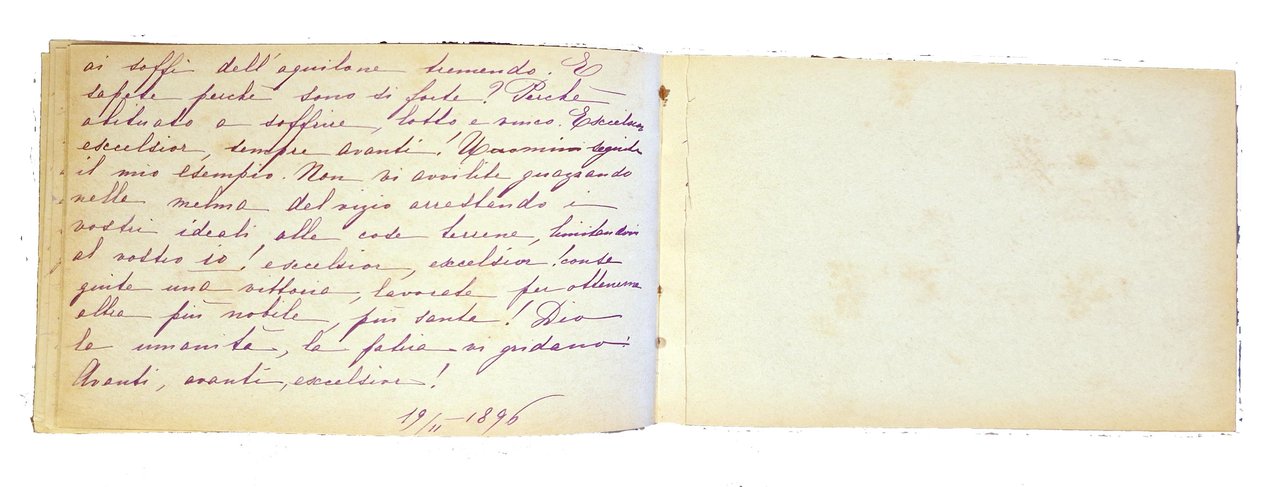 ai soffi dell'aquilone tremendo. E
sapete perchè sono si forte? Perchè
abituato a soffrire, lotto e vinco. Excelsior
excelsior, sempre avanti! Uuomini seguite
il mio esempio. Non vi avvilite guazzando
nella melma del vizio arrestando i
vostri ideali alle cose terrene, limitandovi
al vostro io! excelsior, excelsior! conse
guite una vittoria, lavorate per ottenerne
altra più nobile, più santa! Dio
la umanità, la patria vi gridano:
Avanti, avanti, excelsior!
19/II-1896